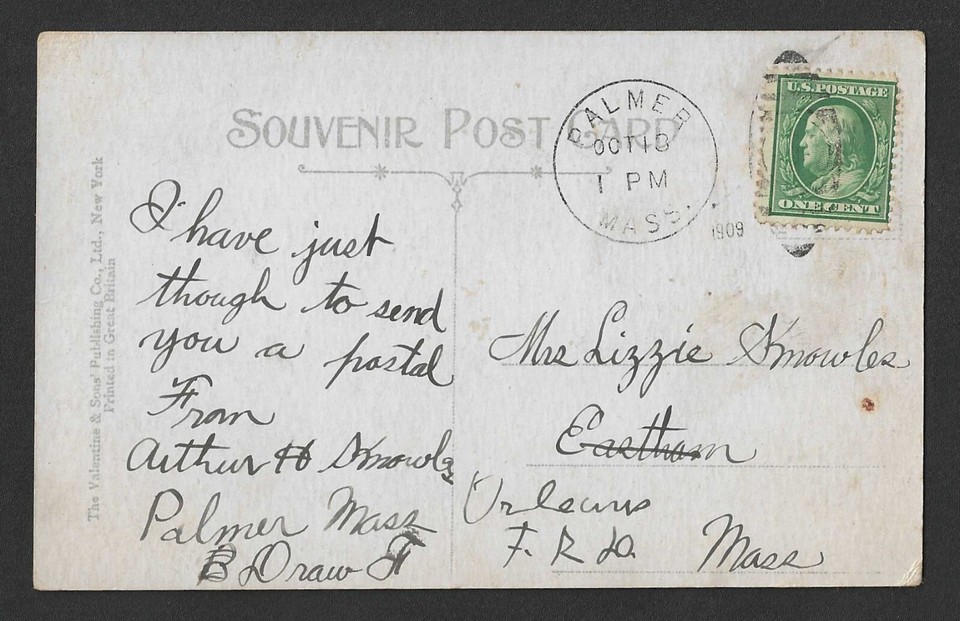 SOUVENIR POST CARD
PALMER
OCT 18
1 PM
MASS.
1909
U.S. POSTAGE
ONE CENT
The Valentine & Sons' Publishing Co., Ltd., New York
Printed in Great Britain
I have just
though to send
you a postal
From
Arthur H Knowles
Palmer Mass
B Draw
Mrs Lizzie Knowles
Eastham
Orleans
F. R. D. Mass